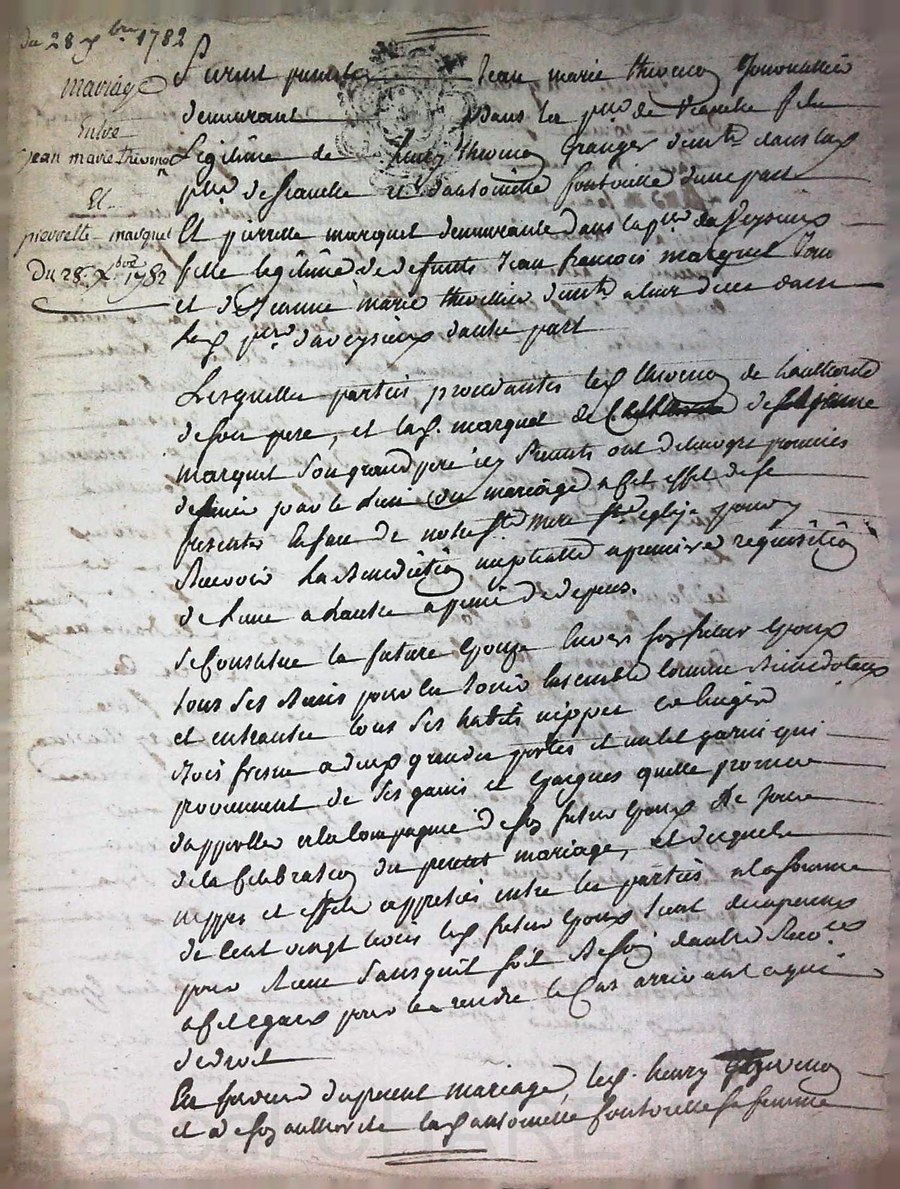 du 28 xbre 1782
mariage
Entre
jean marie thevenon
Et
pierrette marquet
Du 28 xbre 1782
Furent presents jean marie thevenon
demeurant Dans la psse de fils
Legitime de henry thevenon Granger dmt dans lad
psse de et dantoinette fontvielle dune part
Et pierrette marquet demeurante dans la psse de Veysieux
fille legitime de defunts jean francois marquet
et de jeanne marie thevillier dmts a leur deces dans
lad psse daveysieux dautre part
Lesquelles parties procedantes led thevenon de lauthorité
de son pere, et lad. marquet de de
marquet son grand pere icy presents ont de leur gré promis
de sunir par le lien du mariage a cet effet de se
presenter en face de notre ste mere ste eglise pour y
Recevoir La Benediction nuptialle a premiere requisition
de lune a lautre a peine de depens.
Se Constitue la future Epouse envers son futur Epoux
tous ses biens pour en jouir ensemble comme
et entrautre tous ses habits nippes et linges
bois fresne a deux grandes portes et un lit garni qui
proviennent de ses gains et Epargnes quelle promet
dapporter a la Compagnie de son futur Epoux le jour
de la celebration du present mariage, et desquels
nippes et effets appreties entre les parties a la somme
de Cent vingt trois led futur Epoux
pour sansquil soit Besoin dautre
a et Egard pour les rendre le Cas arrivant a qui
de droit
En faveur du present mariage, led. henry thevenon
et de son authorité lad antoinette fontvielle sa femme